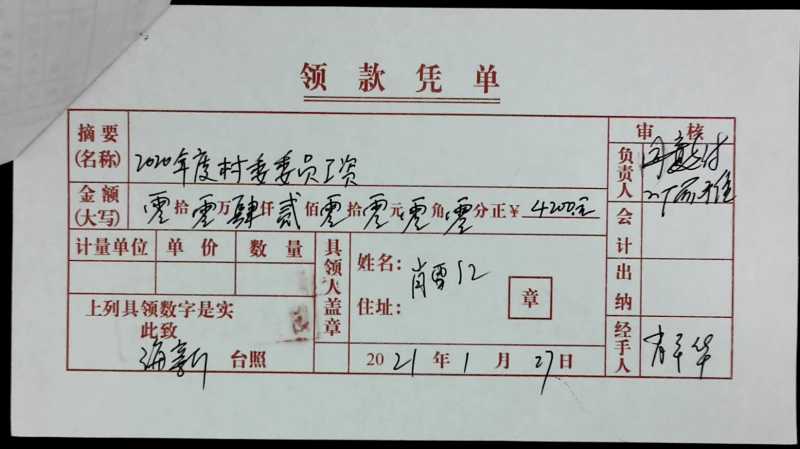 领款凭单
摘要
(名称)
2020年度村委委员工资
金额
(大写)
零拾零万肆仟贰佰零拾零元零角零分正¥ 4200元
计量单位 单价 数量
上列具领数字是实
此致
台照
具领人盖章
姓名：肖雪
住址：
章
2021年1月27日
审核
负责人
同意支付
会计
出纳
经手人
肖华